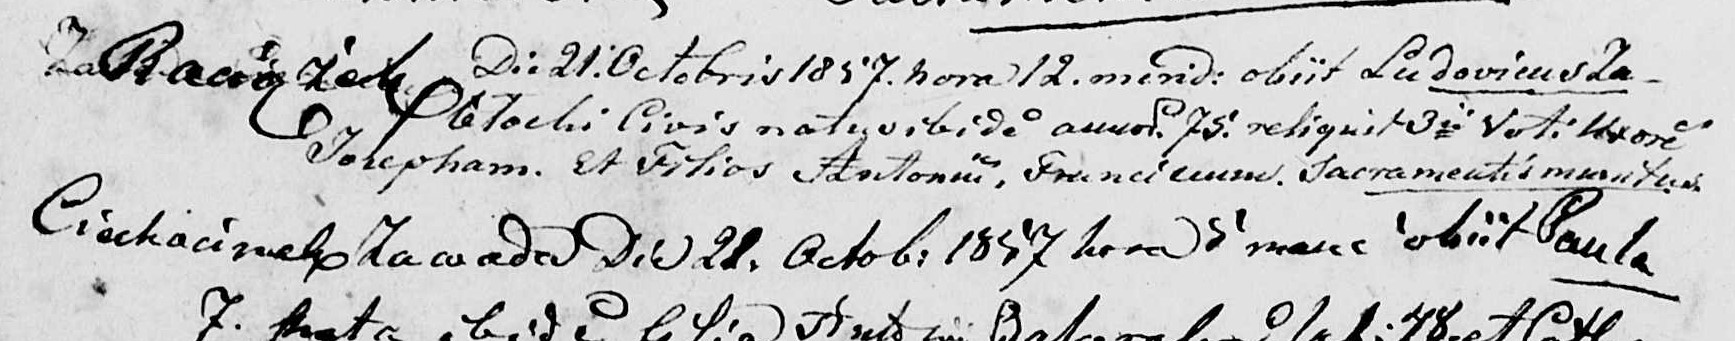 Raciąžek Die 21. Octobris 1857. hora 12. merid: obiit Ludovicus Za-
błocki Civis natus ibidē annor. 75. reliquit 3ii Voti Uxorē
Josepham. Et Filios Antoniū, Franciscum. Sacramentis munitus
Ciechocinek Zawada Die 21. Octob: 1857 hora 5 mane obiit Paula
7. nata ibidē filia et